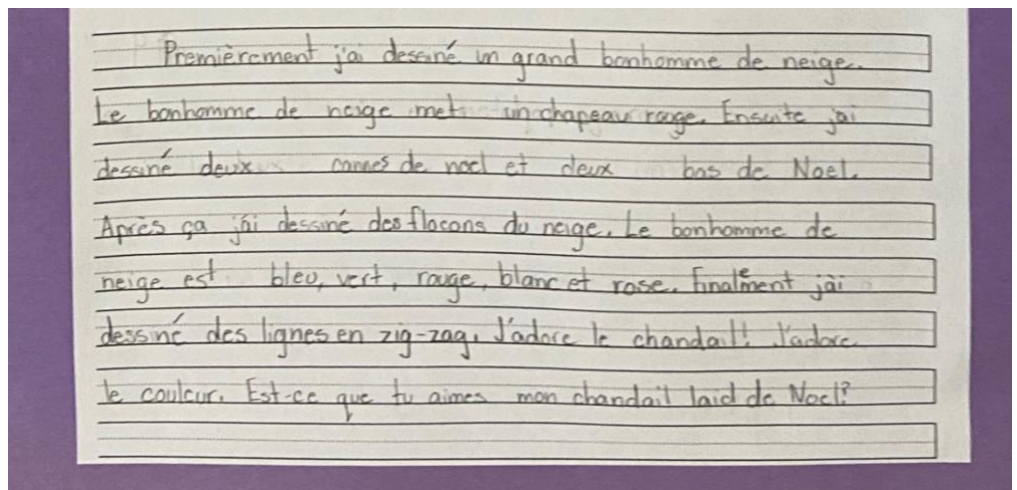 Premièrement j'ai dessiné un grand bonhomme de neige.
Le bonhomme de neige met un chapeau rouge. Ensuite j'ai
dessiné deux cannes de noel et deux bas de Noel.
Après ça j'ai dessiné des flocons du neige. Le bonhomme de
neige est bleu, vert, rouge, blanc et rose. Finalement j'ai
dessiné des lignes en zig-zag. J'adore le chandail! J'adore
le couleur. Est-ce que tu aimes mon chandail laid de Noel?